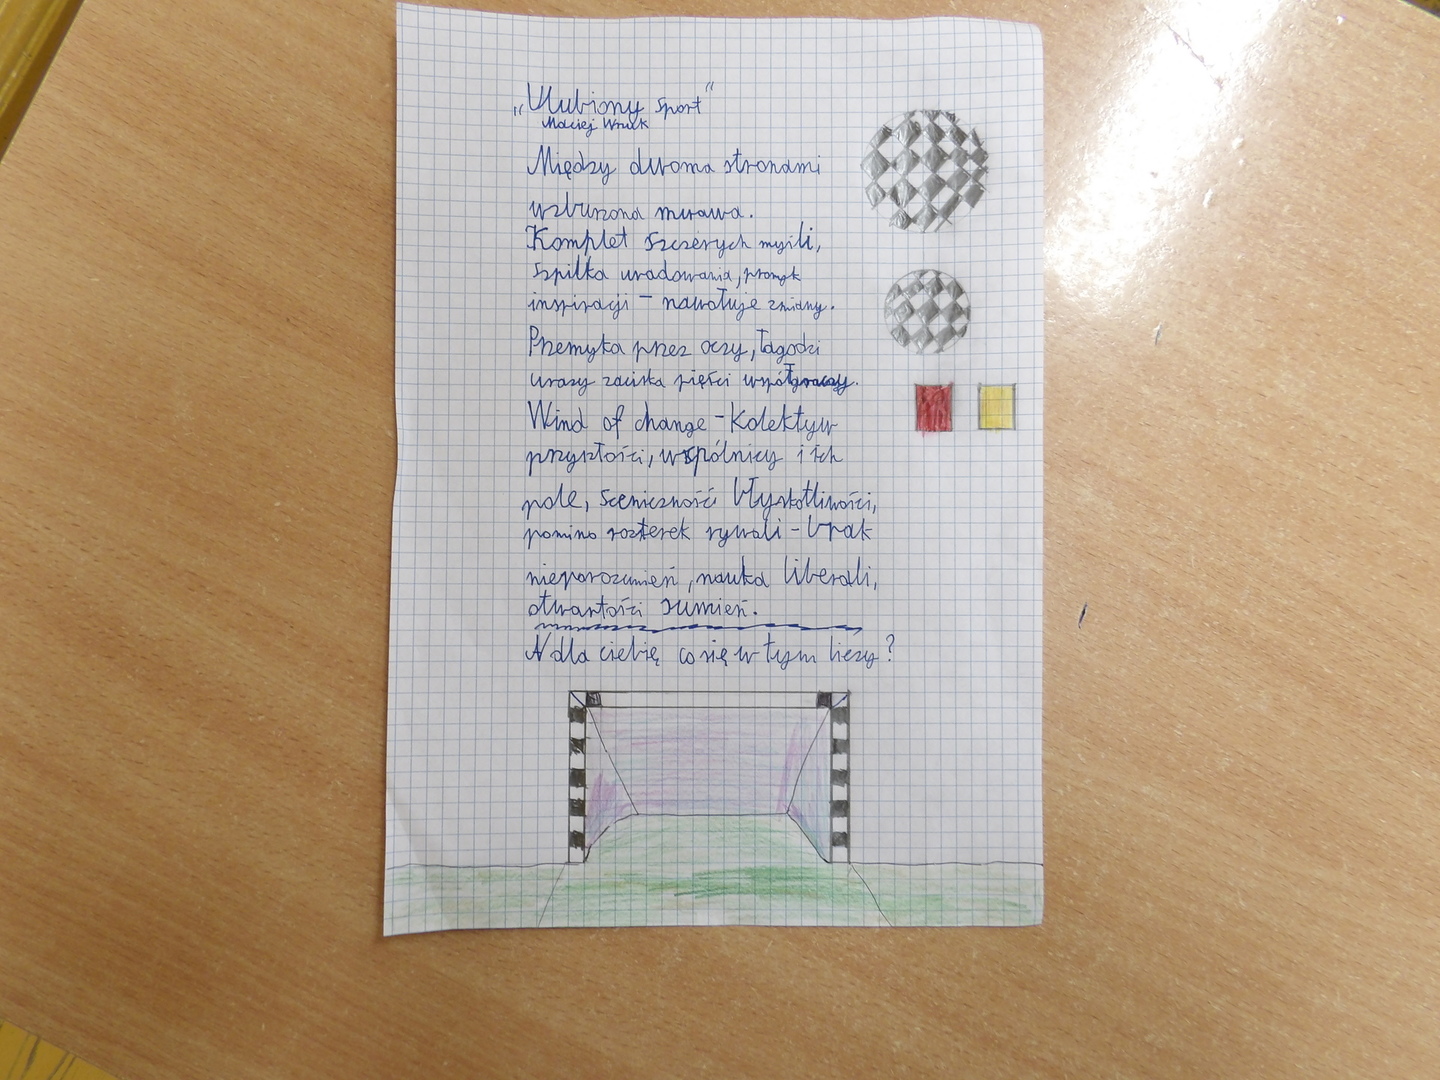 „Ulubiony sport"
Maciej
Między dwoma stronami
wzburzona murawa.
Komplet szczerych myśli,
szpilka uradowania, promyk
inspiracji – nawołuje zmiany.
Przemyka przez oczy, łagodzi
urazy zaciska pięści współgraczy.
Wind of change – Kolektyw
przyszłości, wspólnicy i ich
pole, sceniczność błyskotliwości,
pomimo rozterek rywali – brak
nieporozumień, nauka liberali,
otwartości sumień.
A dla ciebię co się w tym liczy?